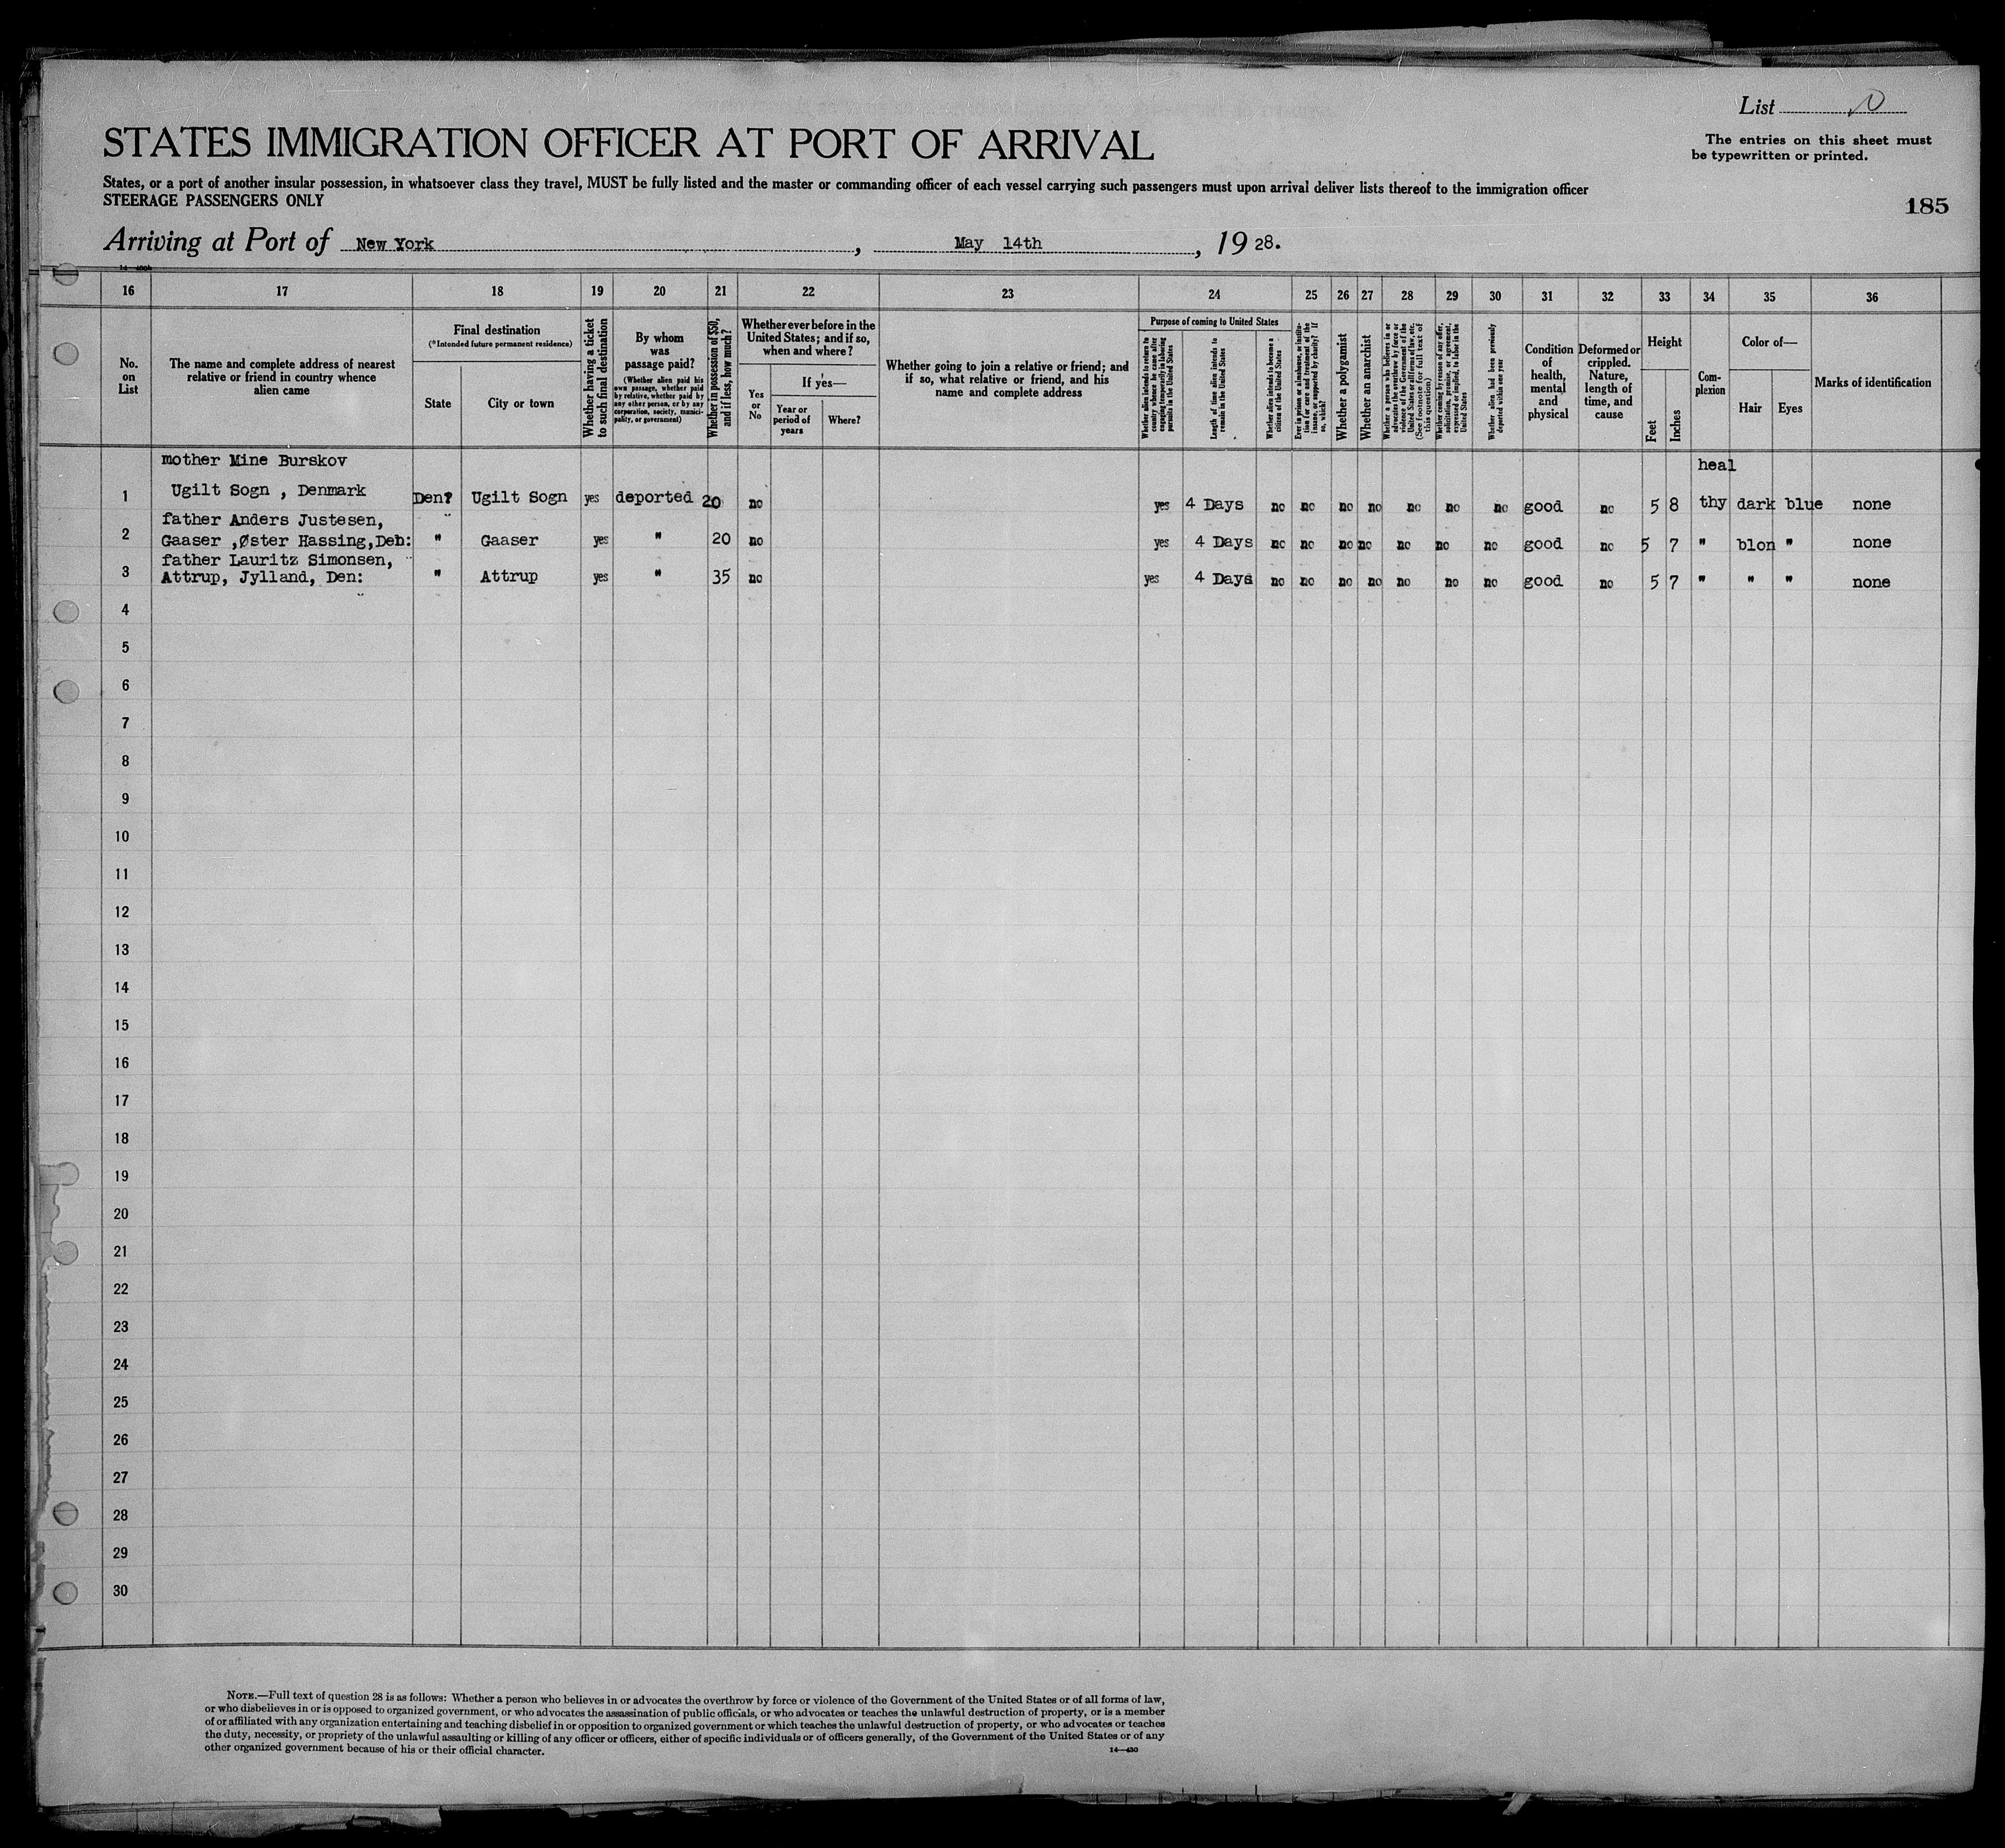 List
STATES IMMIGRATION OFFICER AT PORT OF ARRIVAL
The entries on this sheet must
be typewritten or printed.
States, or a port of another insular possession, in whatsoever class they travel, MUST be fully listed and the master or commanding officer of each vessel carrying such passengers must upon arrival deliver lists thereof to the immigration officer
STEERAGE PASSENGERS ONLY
185
Arriving at Port of New York, May 14th, 19 28.
16 17 18 19 20 21 22 23 24 25 26 27 28 29 30 31 32 33 34 35 36
No.
on
List
The name and complete address of nearest
relative or friend in country whence
alien came
Final destination
(*Intended future permanent residence)
State
City or town
Whether having a ticket
to such final destination
By whom
was
passage paid?
(Whether alien paid his
own passage, whether paid
by relative, whether paid by
any other person, or by any
corporation, society, munici-
pality, or government)
Whether in possession of $50,
and if less, how much?
Whether ever before in the
United States; and if so,
when and where?
Yes
or
No
If yes—
Year or
period of
years
Where?
Whether going to join a relative or friend; and
if so, what relative or friend, and his
name and complete address
Purpose of coming to United States
Whether alien intends to return to
country whence he came after
engaging temporarily in laboring
pursuits in the United States
Length of time alien intends to
remain in the United States
Whether alien intends to become a
citizen of the United States
Ever in prison or almshouse, or institu-
tion for care and treatment of the
insane, or supported by charity? If
so, which?
Whether a polygamist
Whether an anarchist
Whether a person who believes in or
advocates the overthrow by force or
violence of the Government of the
United States or all forms of law, etc.
(See footnote for full text of
this question)
Whether coming by reason of any offer,
solicitation, promise, or agreement,
expressed or implied, to labor in the
United States
Whether alien had been previously
deported within one year
Condition
of
health,
mental
and
physical
Deformed or
crippled.
Nature,
length of
time, and
cause
Height
Feet
Inches
Com-
plexion
Color of—
Hair
Eyes
Marks of identification
mother Mine Burskov heal
1 Ugilt Sogn , Denmark Den? Ugilt Sogn yes deported 20 no yes 4 Days no no no no no no no good no 5 8 thy dark blue none
father Anders Justesen,
2 Gaaser ,Øster Hassing,Den: " Gaaser yes " 20 no yes 4 Days no no no no no no no good no 5 7 " blon " none
father Lauritz Simonsen,
3 Attrup, Jylland, Den: " Attrup yes " 35 no yes 4 Days no no no no no no no good no 5 7 " " " none
4
5
6
7
8
9
10
11
12
13
14
15
16
17
18
19
20
21
22
23
24
25
26
27
28
29
30
NOTE.—Full text of question 28 is as follows: Whether a person who believes in or advocates the overthrow by force or violence of the Government of the United States or of all forms of law,
or who disbelieves in or is opposed to organized government, or who advocates the assassination of public officials, or who advocates or teaches the unlawful destruction of property, or is a member
of or affiliated with any organization entertaining and teaching disbelief in or opposition to organized government or which teaches the unlawful destruction of property, or who advocates or teaches
the duty, necessity, or propriety of the unlawful assaulting or killing of any officer or officers, either of specific individuals or of officers generally, of the Government of the United States or of any
other organized government because of his or their official character.
14—430